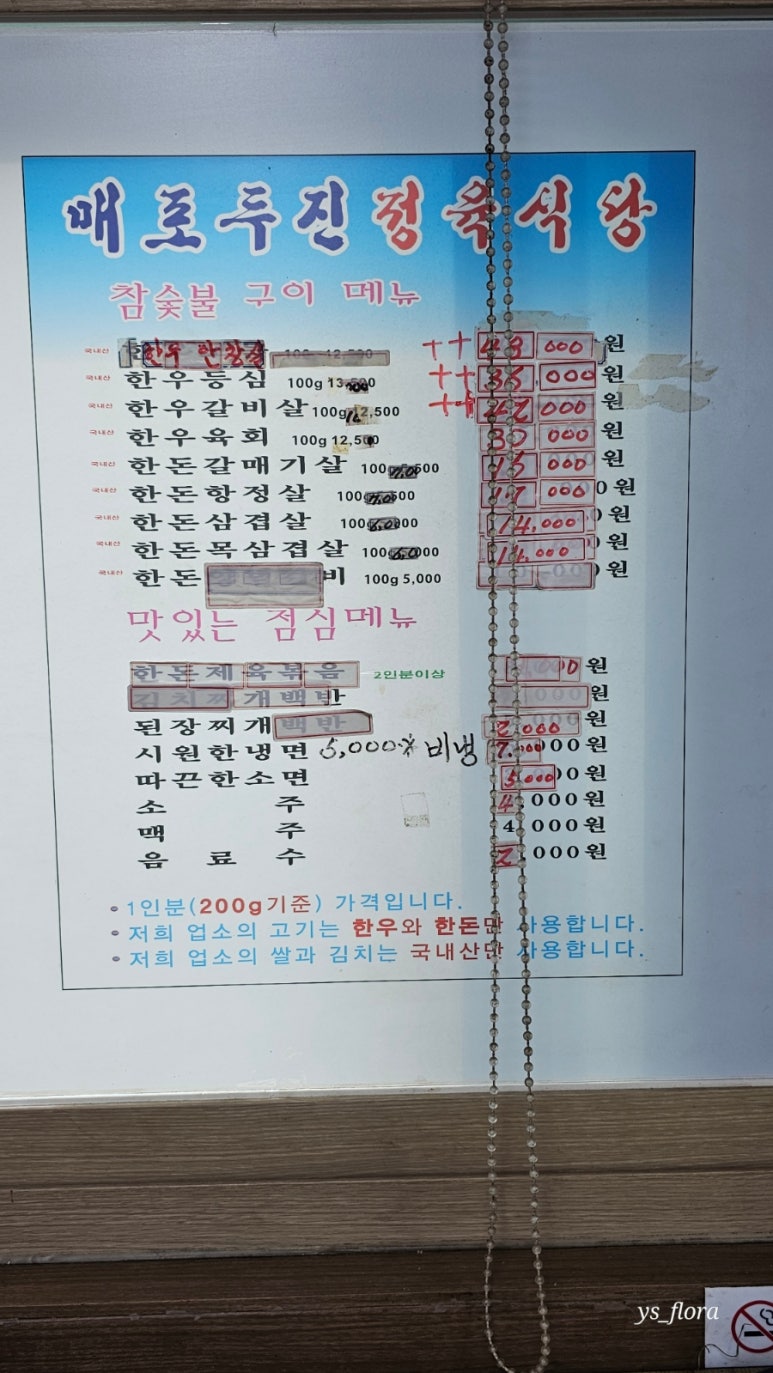 매포두진정육식당
참숯불 구이 메뉴
국내산 한우 한창살 ++ 43 000 원
국내산 한우등심 100g ++ 35,000 원
국내산 한우갈비살 100g ++ 42 000 원
국내산 한우육회 100g 12,500 30 000 원
국내산 한돈갈매기살 100g 000 원
국내산 한돈항정살 100g 17 000 원
국내산 한돈삼겹살 100g 14,000 원
국내산 한돈목삼겹살 100g 14,000 원
국내산 한돈 비 100g 5,000 원
맛있는 점심메뉴
한돈제육볶음 2인분이상 원
김치찌개백반 원
된장찌개백반 2,000 원
시원한냉면 비냉 7,000원
따끈한소면 5,000원
소주 4,000원
맥주 4,000원
음료수 2,000원
1인분(200g기준) 가격입니다.
저희 업소의 고기는 한우와 한돈만 사용합니다.
저희 업소의 쌀과 김치는 국내산만 사용합니다.
ys_flora